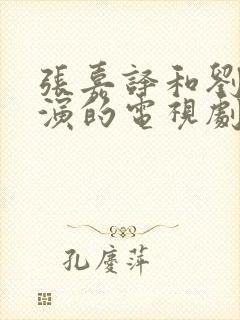 張嘉譯和劉
演的電視劇
孔慶萍